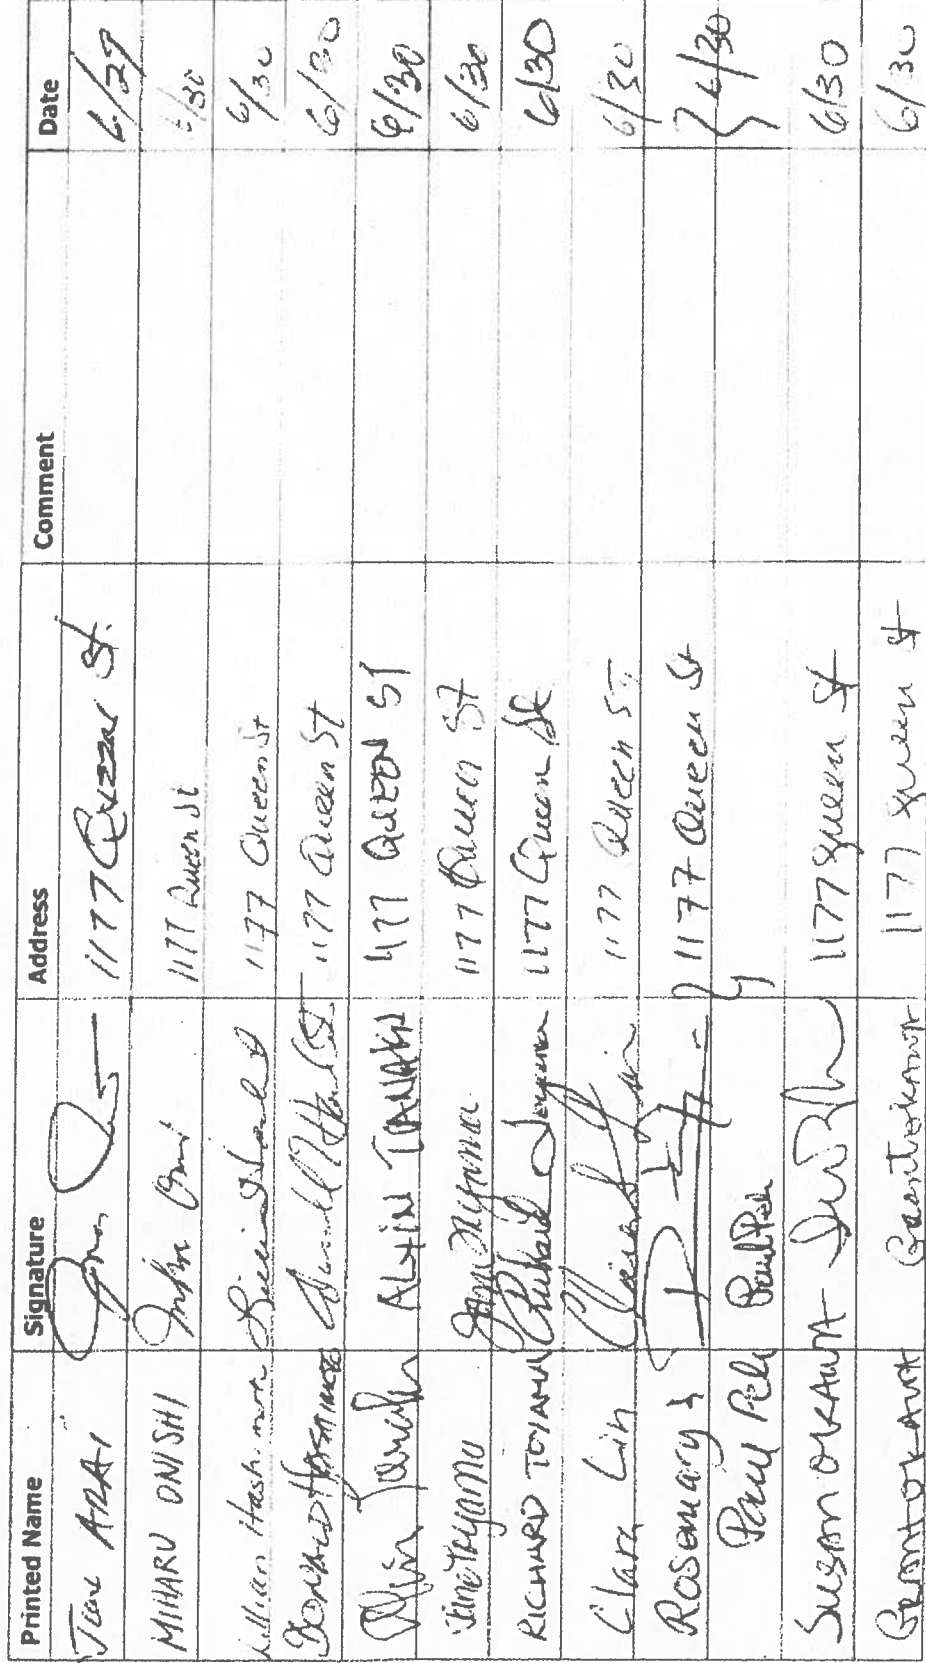 Printed Name Signature Address Comment Date
June ARAI 1177 Queen St. 6/29
MIHARU ONISHI 1177 Queen St 6/30
Lillian Hashimoto 1177 Queen St 6/30
DONALD HASHIMOTO 1177 Queen St 6/30
Alvin Tanaka ALVIN TANAKA 1177 QUEEN ST 6/30
Jane Toyama Jane Toyama 1177 Queen St 6/30
RICHARD TOYAMA Richard Toyama 1177 Queen St 6/30
Clara Lin Clara Lin 1177 Queen ST 6/30
Rosemary 1177 Queen St 6/30
Paul Paul
SUSAN OKAWA 1177 Queen St 6/30
GRANT OKAWA Grant Okawa 1177 Queen St 6/30